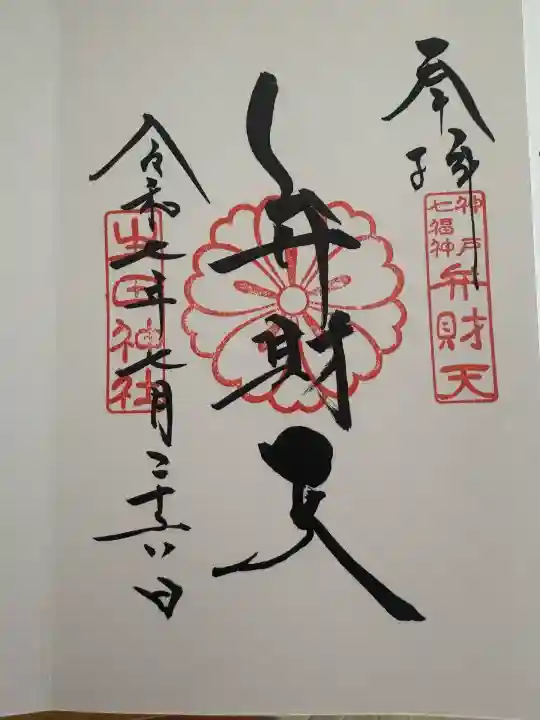 奉拝
神戸七福神
弁財天
弁財天
生田神社
令和七年七月二十八日